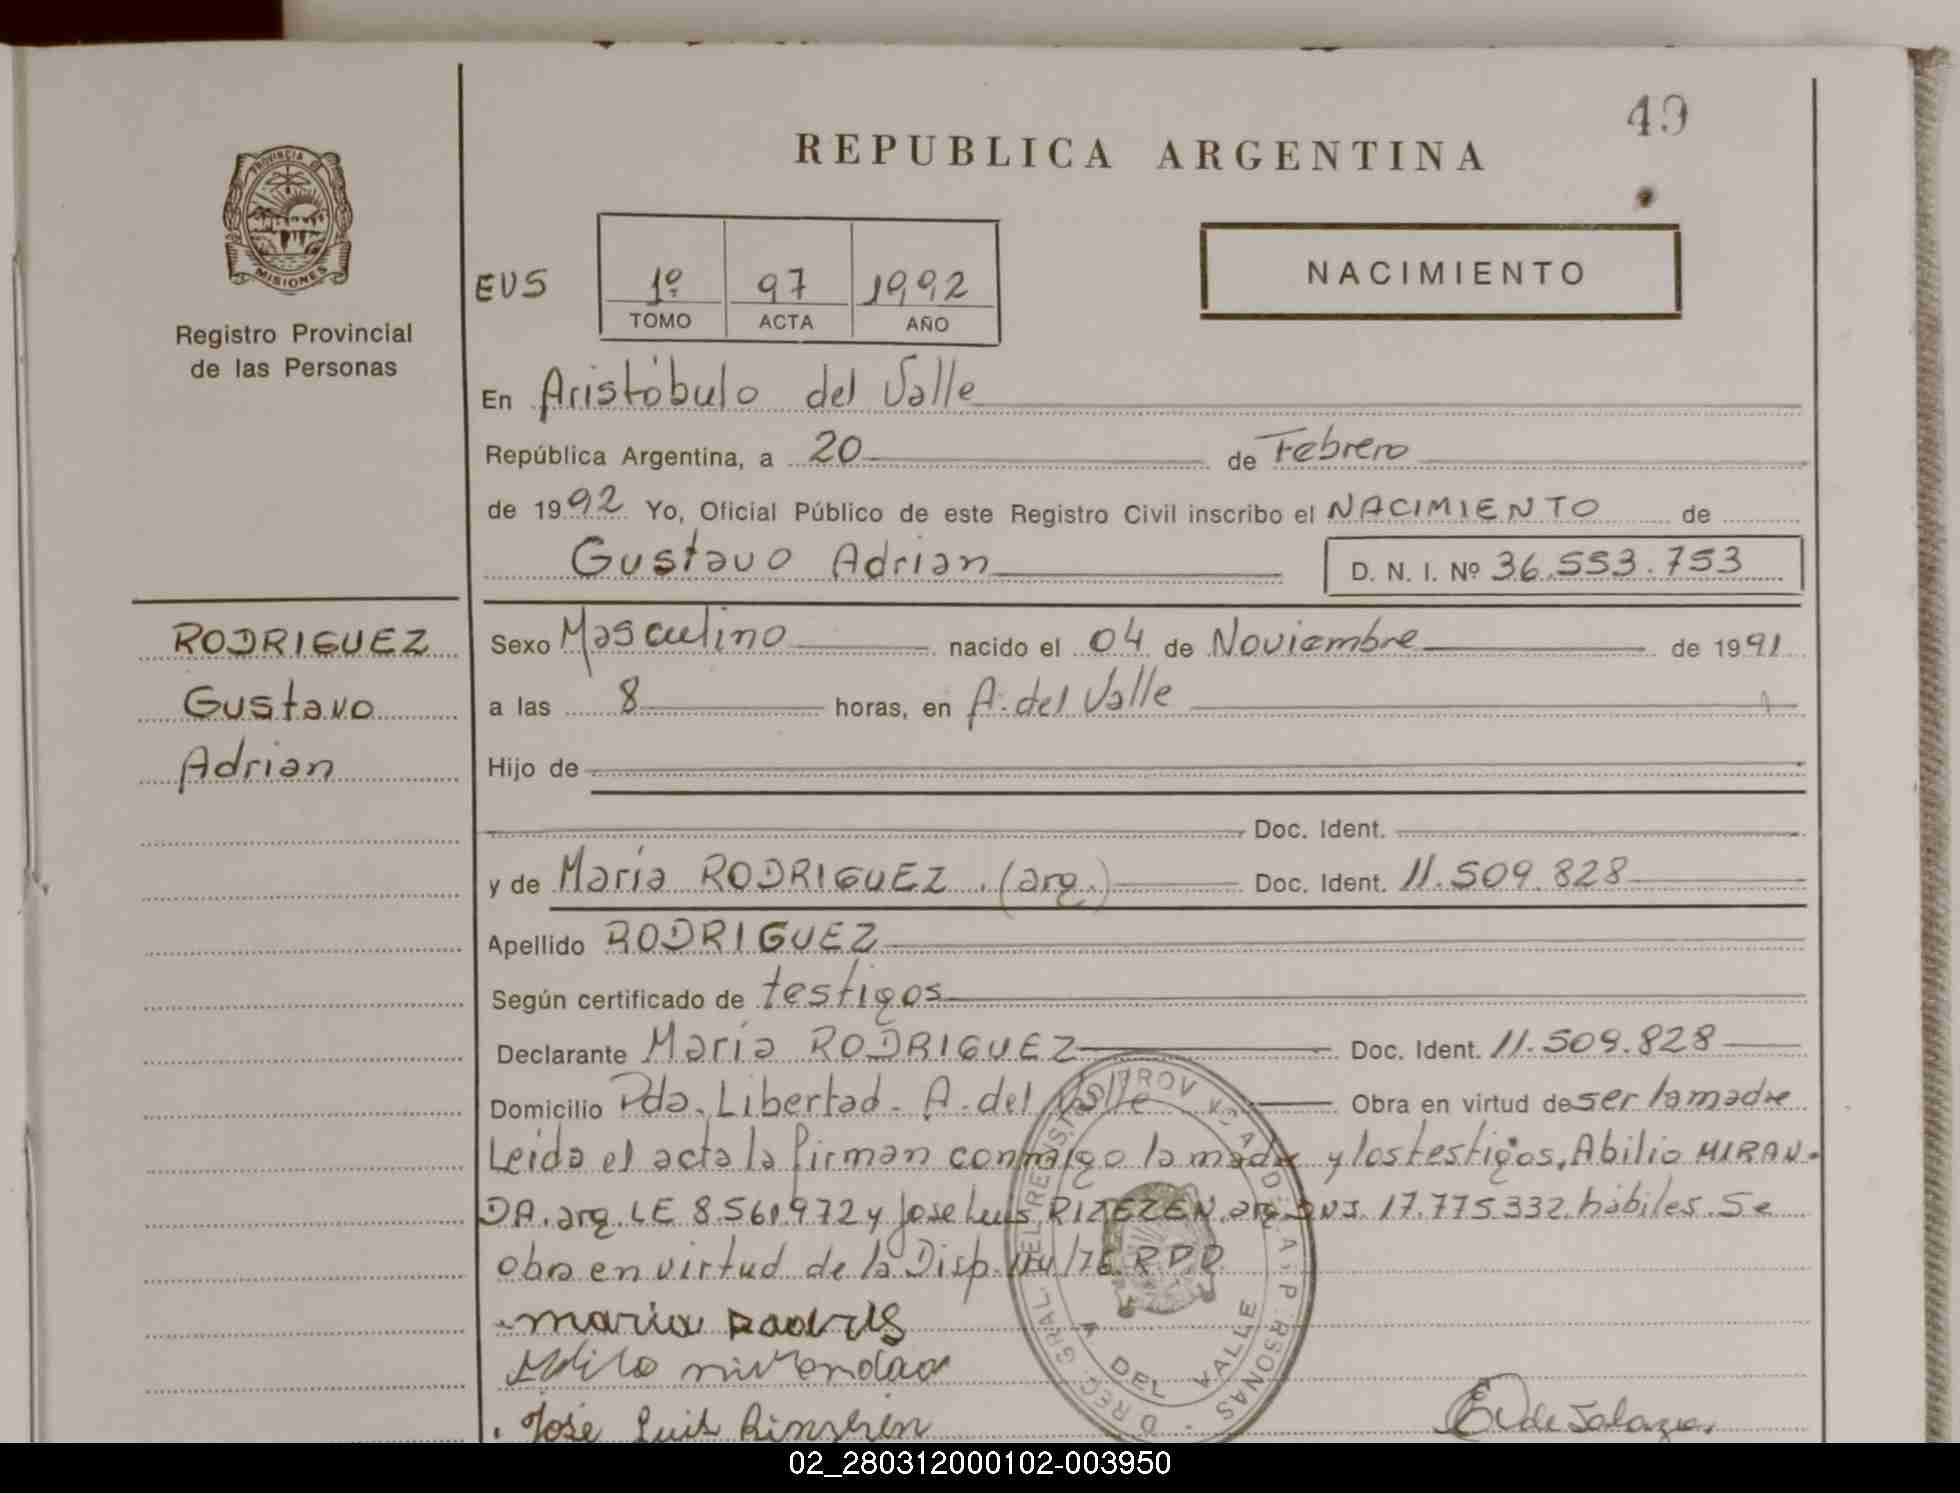 49
REPUBLICA ARGENTINA
PROVINCIA
MISIONES
Registro Provincial
de las Personas
EVS
1º 97 1992
TOMO ACTA AÑO
NACIMIENTO
En Aristóbulo del Valle
República Argentina, a 20 de Febrero
de 1992 Yo, Oficial Público de este Registro Civil inscribo el NACIMIENTO de
Gustavo Adrian D. N. I. Nº 36.553.753
RODRIGUEZ
Gustavo
Adrian
Sexo Masculino nacido el 04 de Noviembre de 1991
a las 8 horas, en A. del Valle
Hijo de
Doc. Ident.
y de María RODRIGUEZ (arg.) Doc. Ident. 11.509.828
Apellido RODRIGUEZ
Según certificado de testigos
Declarante María RODRIGUEZ Doc. Ident. 11.509.828
Domicilio Pda. Libertad - A. del Valle Obra en virtud de ser la madre
Leida el acta la firman conmigo la madre y los testigos, Abilio MIRAN-
DA. arg. LE 8.561.972 y Jose Luis arg. DNI. 17.775.332 hábiles. Se
obra en virtud de la Disp. /76 RPP
maria
José Luis
DEL VALLE
02_280312000102-003950